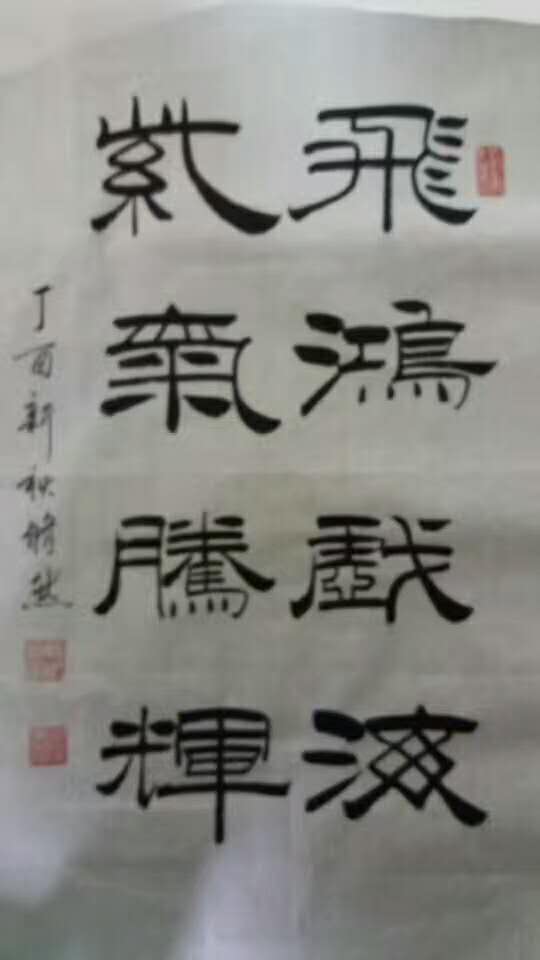 飛鴻戲海
紫氣騰輝
丁酉新秋